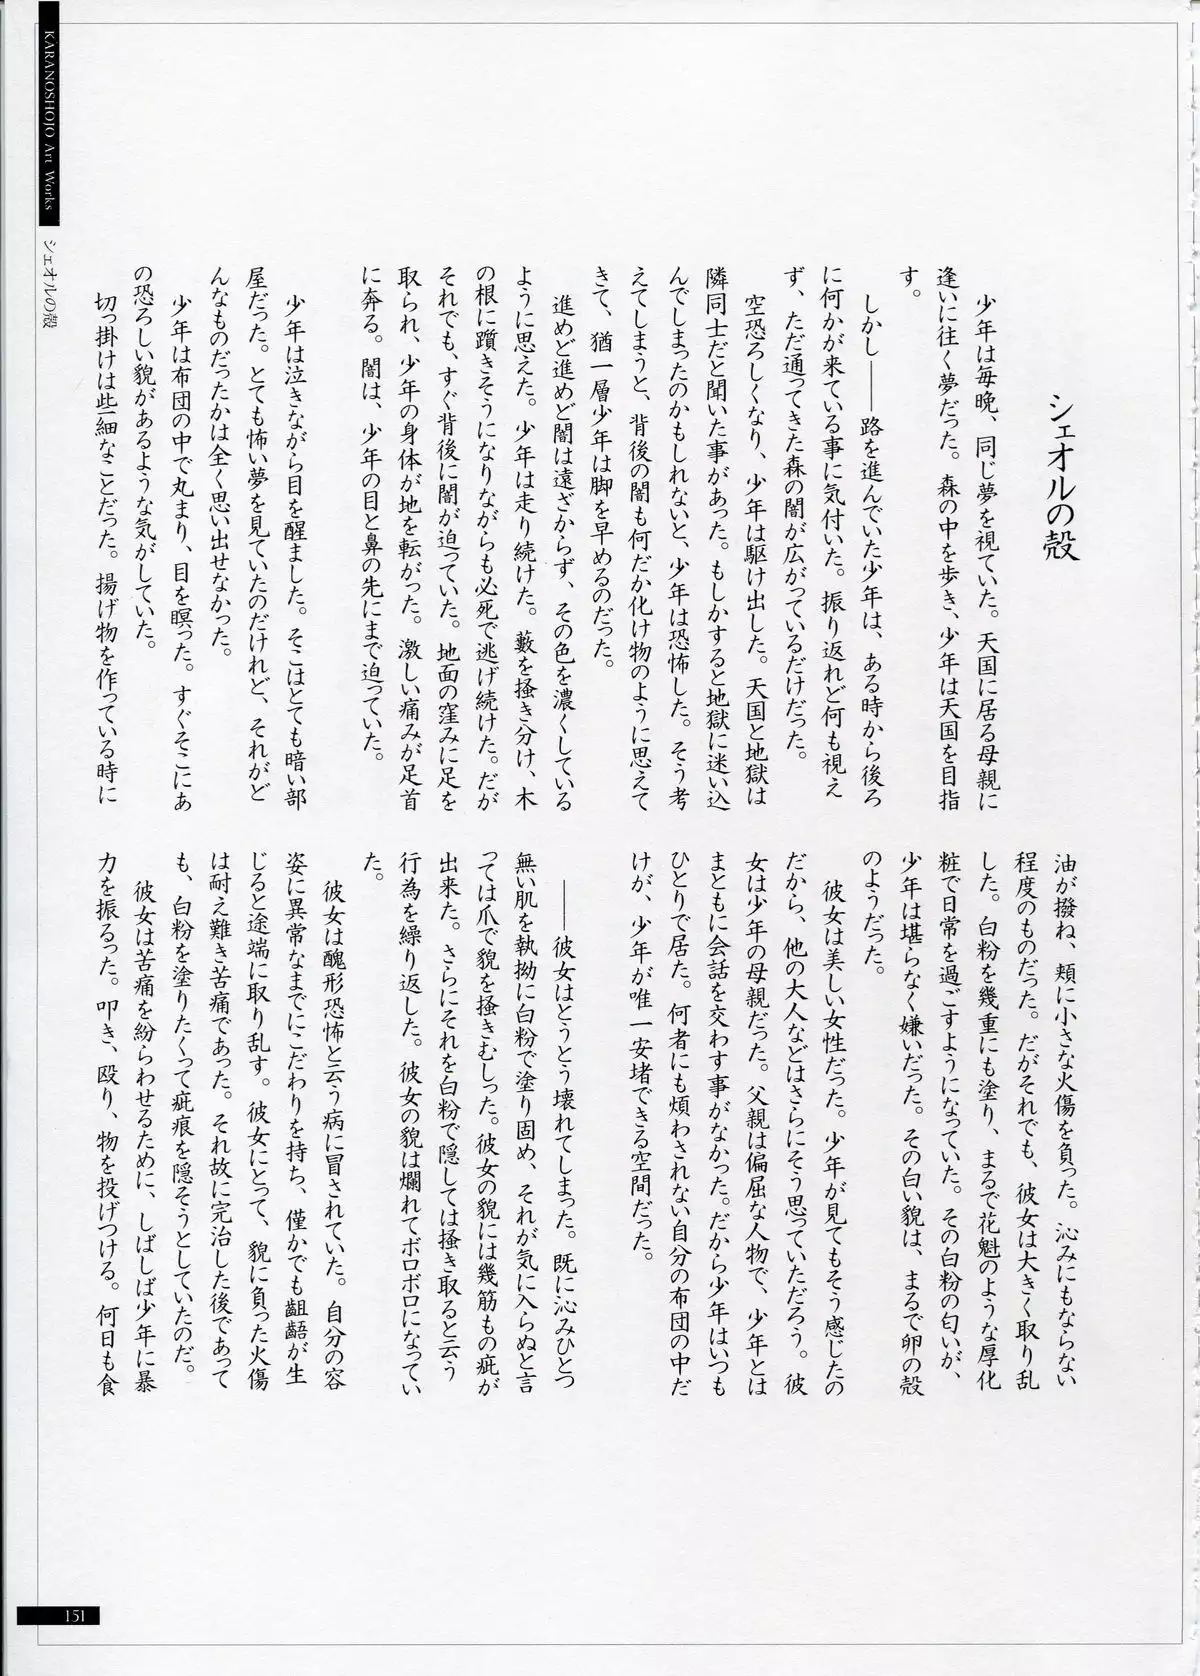 KARANOSHOJO Art Works
シェオルの殻
シェオルの殻
少年は毎晩、同じ夢を視ていた。天国に居る母親に
逢いに往く夢だった。森の中を歩き、少年は天国を目指
す。
しかし――路を進んでいた少年は、ある時から後ろ
に何かが来ている事に気付いた。振り返れど何も視え
ず、ただ通ってきた森の闇が広がっているだけだった。
空恐ろしくなり、少年は駆け出した。天国と地獄は
隣同士だと聞いた事があった。もしかすると地獄に迷い込
んでしまったのかもしれないと、少年は恐怖した。そう考
えてしまうと、背後の闇も何だか化け物のように思えて
きて、猶一層少年は脚を早めるのだった。
進めど進めど闇は遠ざからず、その色を濃くしている
ように思えた。少年は走り続けた。藪を掻き分け、木
の根に躓きそうになりながらも必死で逃げ続けた。だが
それでも、すぐ背後に闇が迫っていた。地面の窪みに足を
取られ、少年の身体が地を転がった。激しい痛みが足首
に奔る。闇は、少年の目と鼻の先にまで迫っていた。
少年は泣きながら目を醒ました。そこはとても暗い部
屋だった。とても怖い夢を見ていたのだけれど、それがど
んなものだったかは全く思い出せなかった。
少年は布団の中で丸まり、目を瞑った。すぐそこにあ
の恐ろしい貌があるような気がしていた。
切っ掛けは些細なことだった。揚げ物を作っている時に
油が撥ね、頬に小さな火傷を負った。沁みにもならない
程度のものだった。だがそれでも、彼女は大きく取り乱
した。白粉を幾重にも塗り、まるで花魁のような厚化
粧で日常を過ごすようになっていた。その白粉の匂いが、
少年は堪らなく嫌いだった。その白い貌は、まるで卵の殻
のようだった。
彼女は美しい女性だった。少年が見てもそう感じたの
だから、他の大人などはさらにそう思っていただろう。彼
女は少年の母親だった。父親は偏屈な人物で、少年とは
まともに会話を交わす事がなかった。だから少年はいつも
ひとりで居た。何者にも煩わされない自分の布団の中だ
けが、少年が唯一安堵できる空間だった。
――彼女はとうとう壊れてしまった。既に沁みひとつ
無い肌を執拗に白粉で塗り固め、それが気に入らぬと言
っては爪で貌を掻きむしった。彼女の貌には幾筋もの疵が
出来た。さらにそれを白粉で隠しては掻き取ると云う
行為を繰り返した。彼女の貌は爛れてボロボロになってい
た。
彼女は醜形恐怖と云う病に冒されていた。自分の容
姿に異常なまでにこだわりを持ち、僅かでも齟齬が生
じると途端に取り乱す。彼女にとって、貌に負った火傷
は耐え難き苦痛であった。それ故に完治した後であって
も、白粉を塗りたくって疵痕を隠そうとしていたのだ。
彼女は苦痛を紛らわせるために、しばしば少年に暴
力を振るった。叩き、殴り、物を投げつける。何日も食
151